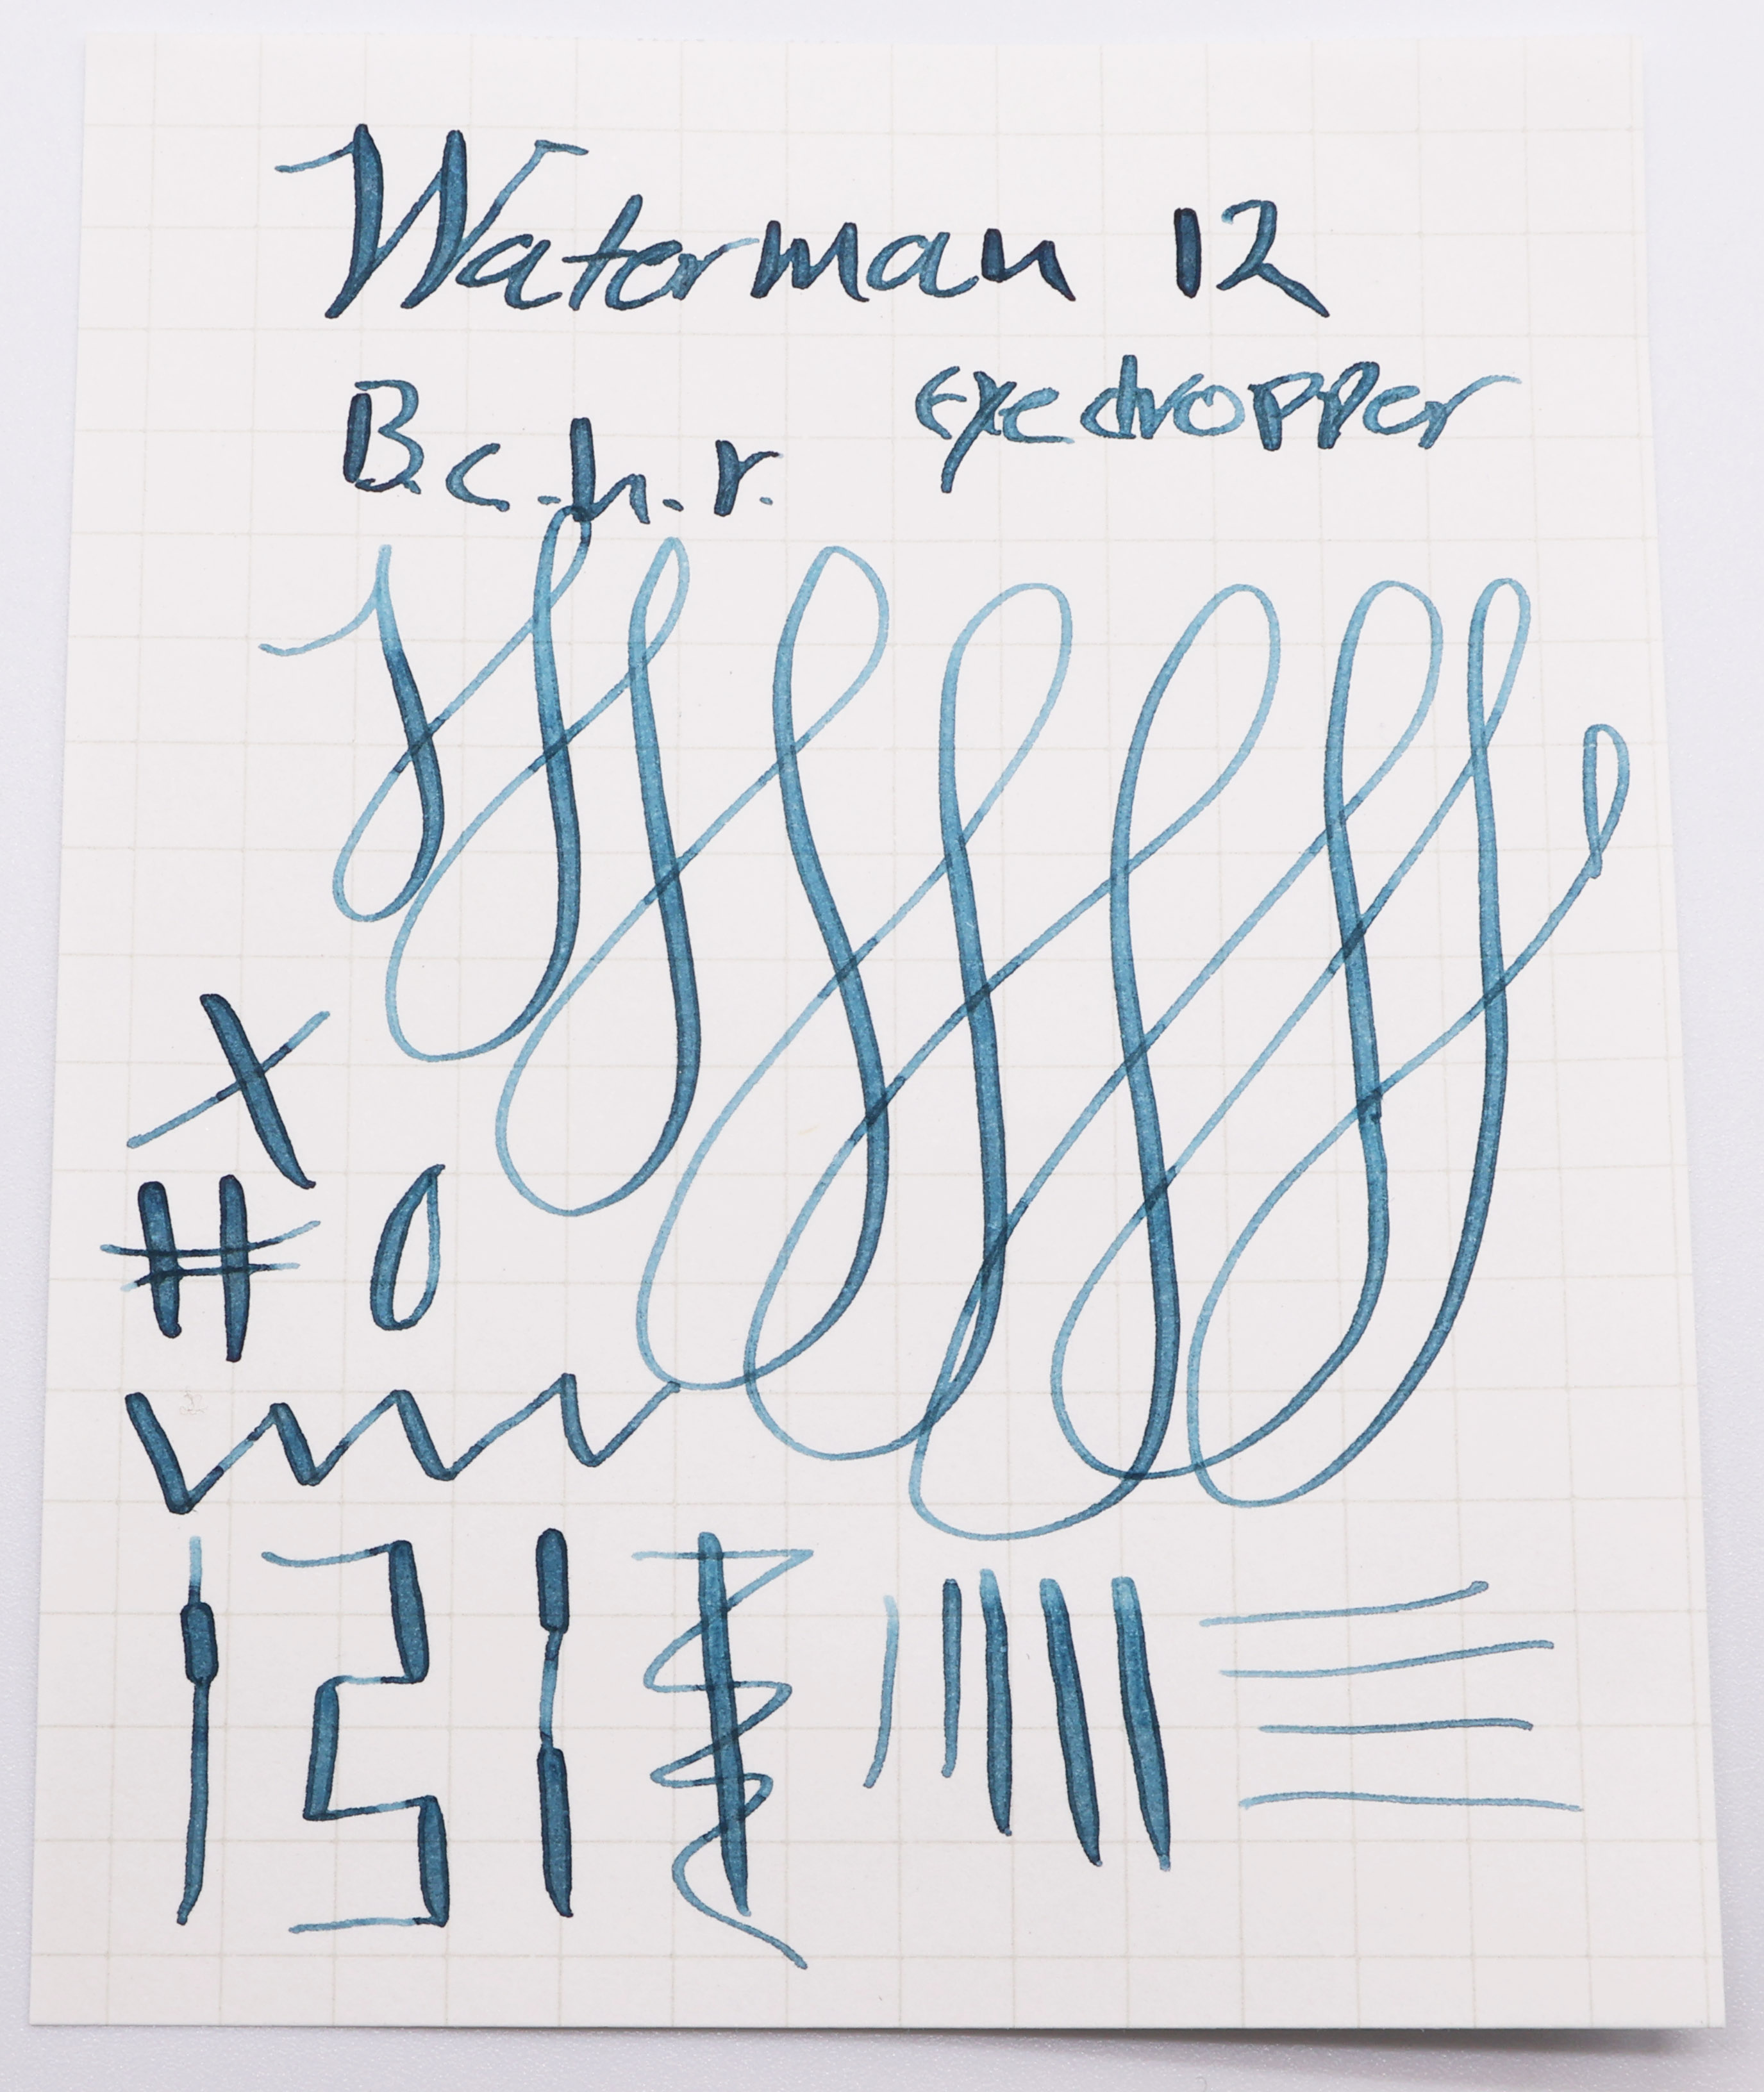 Waterman 12
B.c.h.r. eyedropper
X
# 0